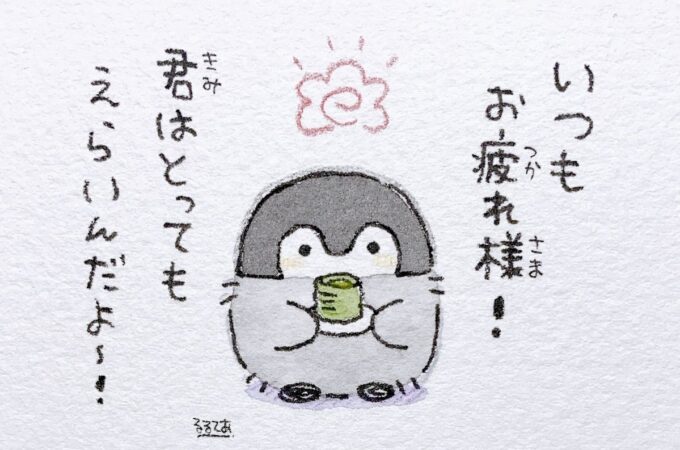 いつも
お疲れ様!
つか
さま
君はとっても
きみ
えらいんだよ〜!
るるてあ